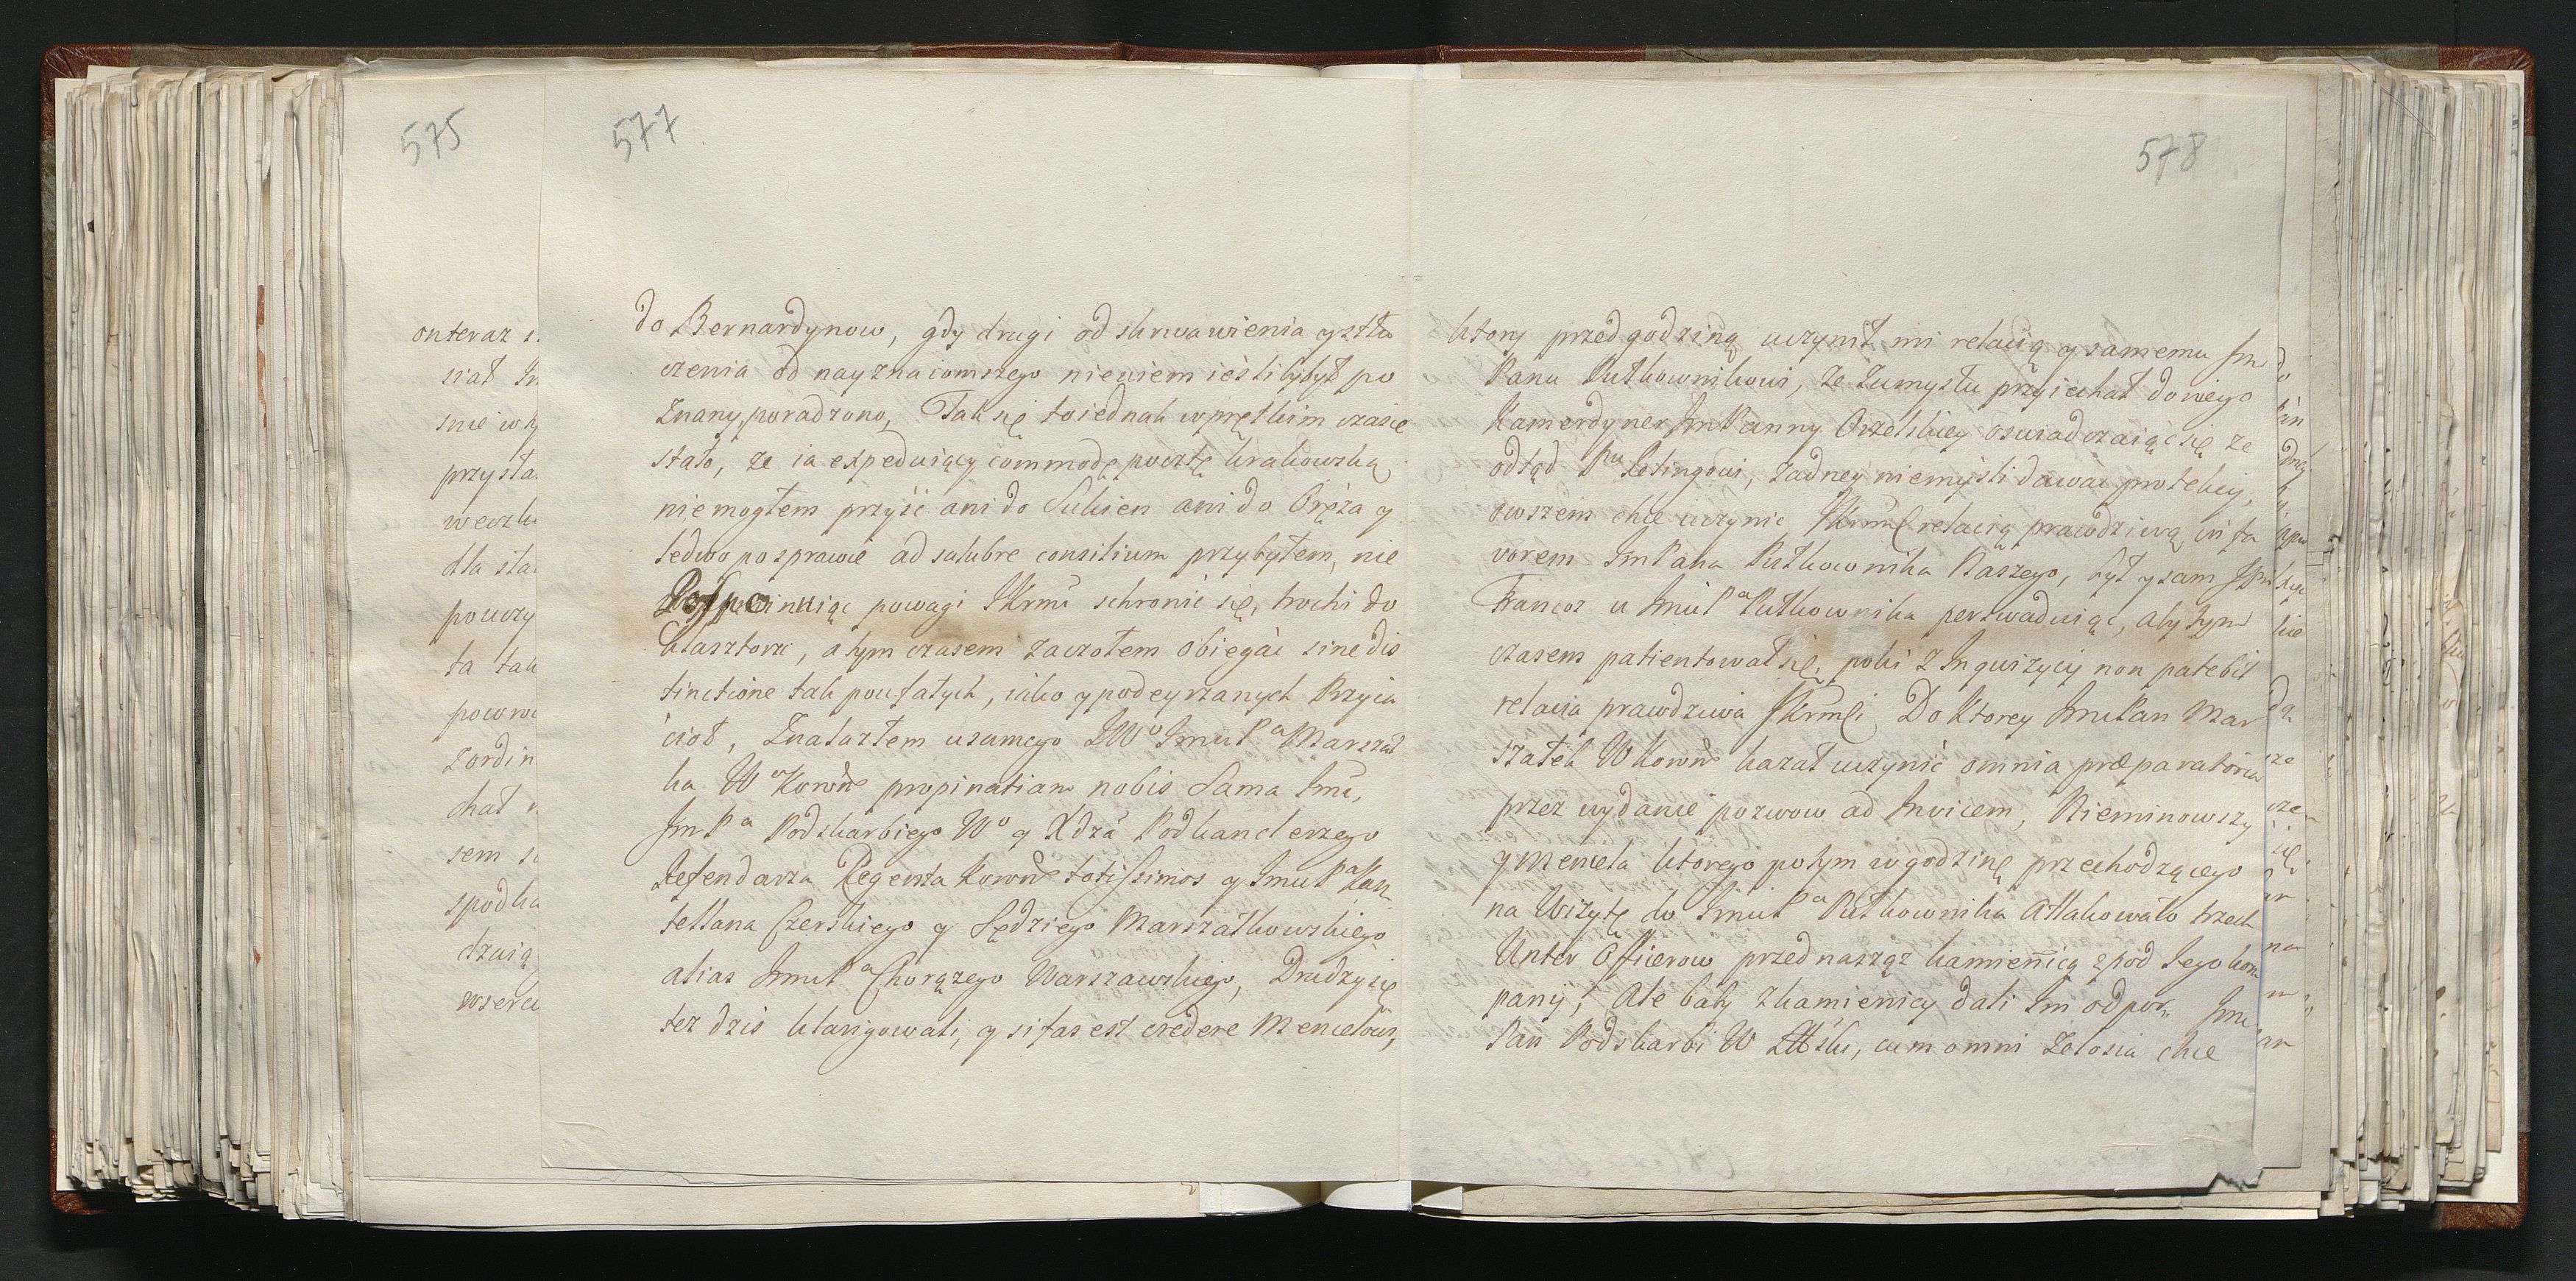 575
onteraz
siał
snie
przysta
weczh
dla sta
pouczy
ta tak
powro
zordin
chał
sem
spodka
dzaią
wserc
577
do Bernardynow, gdy drugi od skrwawienia y stłu
czenia od nayznaiomszego niewiem iesli byłby po
znany, poradzono, Tak się to iednak w prętkim czasie
stało, ze ia expediuiący commodę pocztę krakowską,
niemogłem przyiść ani do Sukien ani do Oręza y
ledwo po sprawie ad salubre consilium przybyłem, nie
powagi JKrmci schronić się, trochi do
klasztoru, a tym czasem zaczołem obiegać sine dis
tinctione tak poufałych, iako y podeyrzanych Przyia
cioł, Znalazłem u samego JWo Jmci Pa Marszał
ka Wo Koronne propinatiam nobis Sama Jmc,
Jm Pa Podskarbiego Wo y Xdza Podkanclerzego
Refendarza Regenta Koronne totissimos y Jmci Pa Kan
tellana Czerskiego y Sędziego Marszałkowskiego
alias Jmci Pa Chorązego Warszawskiego, Drudzy się
tez dzis klarigowali, y si fas est credere Mencelowi,
578
ktory przed godziną uczynił mi relacią y samemu Jm
Panu Pułkownikowi, ze zumysłu przyiechał do niego
Kamerdyner Jm Panny Orzelskiey oswiadczaiąc się ze
odtąd Pnu Letingowi, zadney niemysli dawać protekcij,
owszem chce uczynic JKrmci relacią prawdziwą in fa
vorem Jm Pana Pułkownika Naszego, był y sam Jpan
Francoz u Jmci Pa Pułkownika perswaduiąc, aby tym
czasem patientował się, poki z Inquizycij non patebit
relacia prawdziwa JKrmci Do Ktorey Jmci Pan Mar
szałek W Koronne kazał uczynić omnia præparatoria
przez wydanie pozwow ad Invicem, Nieminowszy
y Mencla ktorego potym w godzinę przechodzącego
na Wizytę do Jmci Pa Pułkownika Attakowało trzech
Unter Officerow przed naszą kamiennicą zpod Jego kom
panij, Ale baby zkamienicy dali Im odpor,, Jmci
Pan Podskarbi W Litski, cum omni Zelosia chce